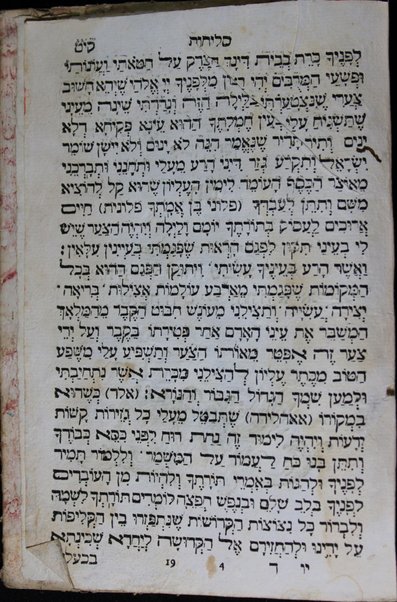 סליחות קיט
לפניך כרת בבית דינך הצדק על חטאתי ועונותי
ופשעי המרובים ויהי רצון מלפניך יי אלהי שיהא חשוב
צערי שנצטערתי בלילה הזה ונדדתי שינה מעיני
שתשגיח עלי בעין חמלתך ההוא עינא פקיחא דלא
נים ותיר תדיר שנאמר הנה לא ינום ולא יישן שומר
ישראל ותקרע גזר דיני הרע מעלי ותחנני ותברכני
מאוצר הכסף העומד לימין העליון שהוא קל להוציא
משם ותתן לעבדך (פלוני בן אמתך פלונית) חיים
ארוכים לעסוק בתורתך יומם ולילה ויהיה הצער שיש
לי בעיני תיקון לפגם הראות שפגמתי בעיינין עלאין:
ואשר הרע בעיניך עשיתי ויתוקן הפגם ההוא בכל
המקומות שפגמתי מארבע עולמות אצילות בריאה
יצירה עשייה ותצילני מעונש חבוט הקבר מהמלאך
המשבר את עיני האדם אחר פטירתו בקבר ועל ידי
צער זה אפטר מאותו הצער ותשפיע עלי משפע
הטוב מכתר עליון להצילני מכרת אשר נתחייבתי
ולמען שמך הגדול הגבור והנורא: (אלד) כשהוא
במקורו (אאהלידה) שתבטל מעלי כל גזירות קשות
ורעות ויהיה לימוד זה נחת רוח לפני כסא כבודך
ותתן בני כח לעמוד על המשמר וללמוד תמיד
לפניך ולהגות באמרי תורתך ולהיות מן העובדים
לפניך בלב שלם ובנפש חפצה לומדים תורתך לשמה
ולברור כל נצוצות הקדושות שנתפזרו בין הקליפות
על ידינו ולהחזירם אל הקדושה ליחדא שכינתא
יו ד 4 19 בבעלה